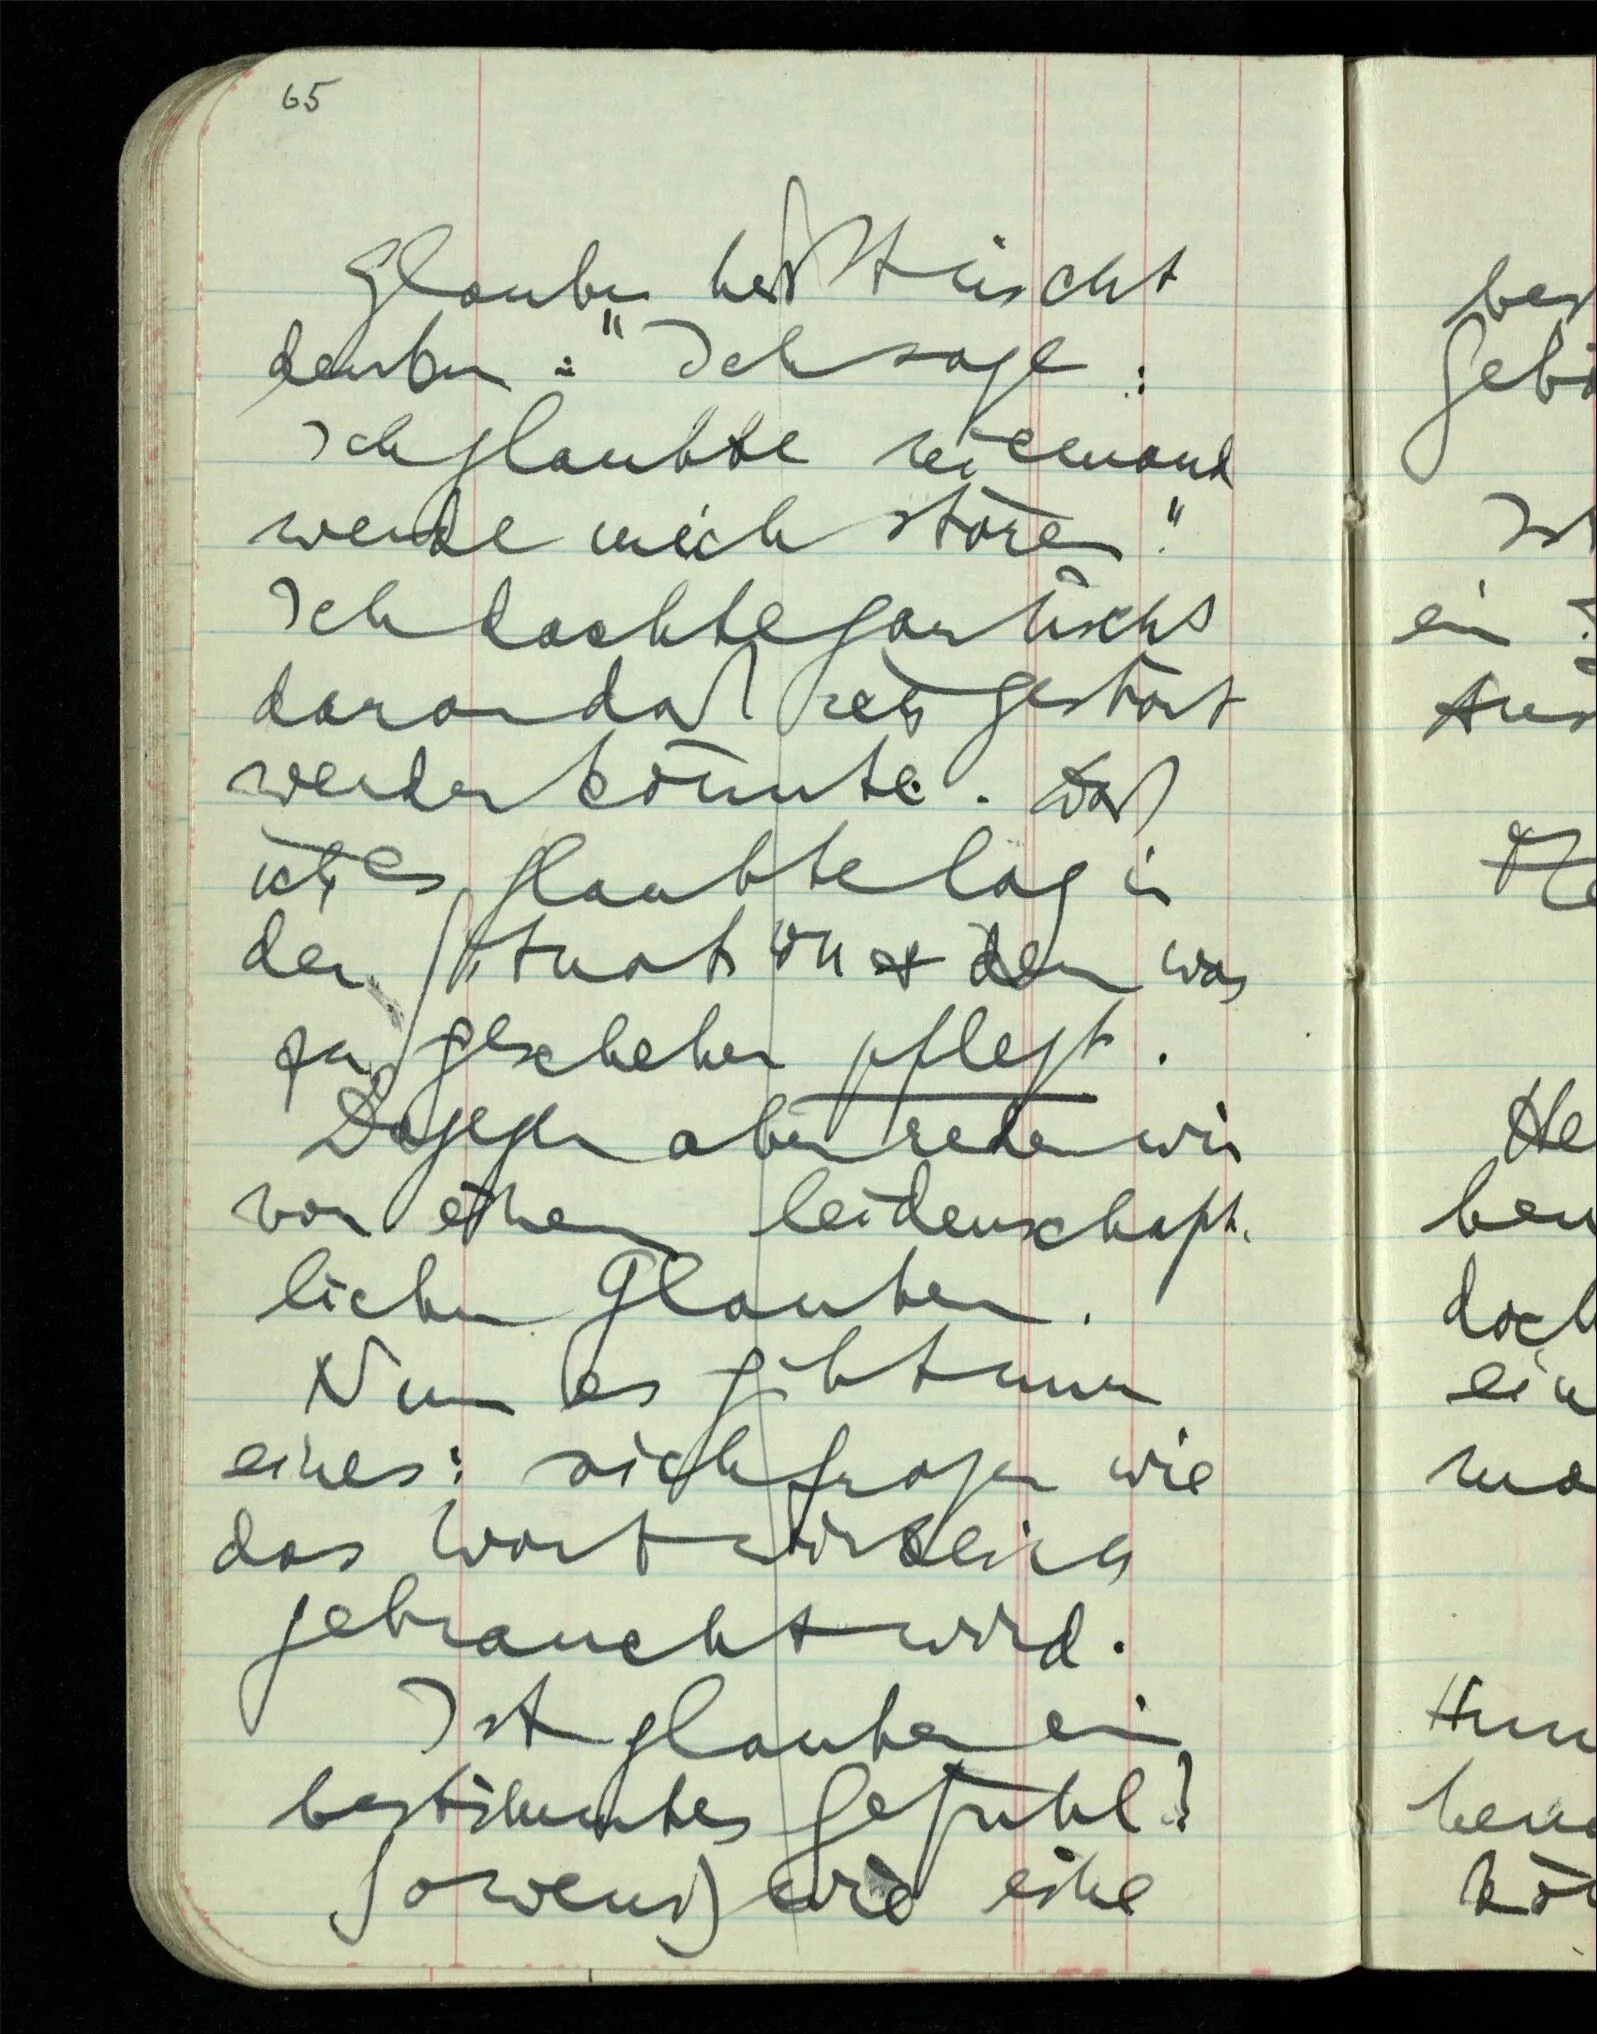 65
Glauben heißt nicht
denken: "Ich sage:
Ich glaubte niemand
werde mich stören."
Ich dachte gar nicht
daran daß ich gestört
werden könnte. Daß
ich es glaubte lag in
der Situation & dem was
zu geschehen pflegt.
Dagegen aber reden wir
von einem leidenschaft-
lichen Glauben.
Nun es gibt nur
eines: sich fragen wie
das Wort wirklich
gebraucht wird.
Ist glauben ein
bestimmtes Gefühl?
Sowenig wie eine